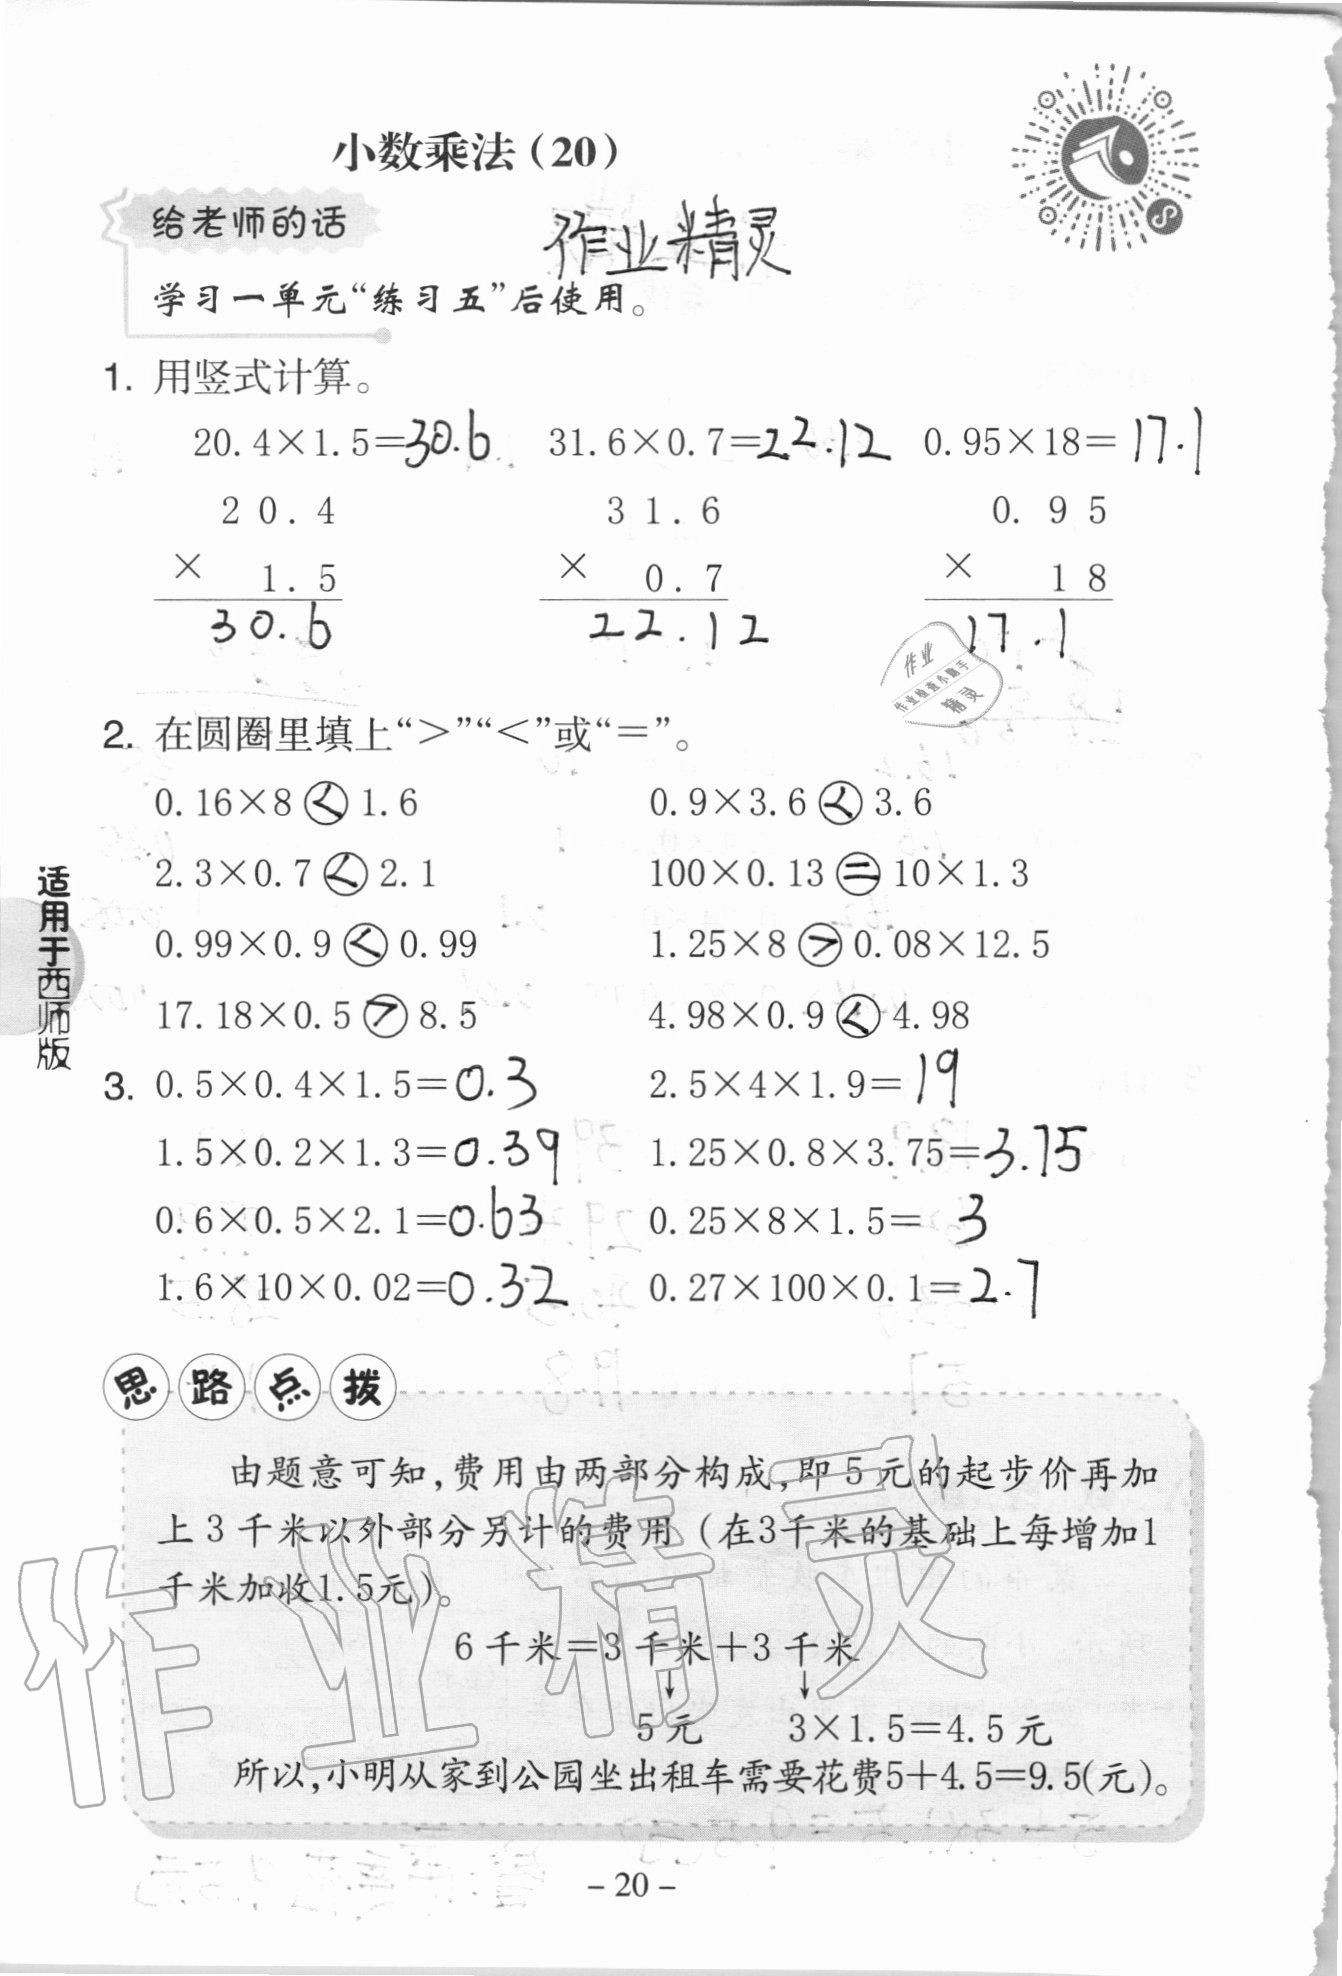 小数乘法（20）
给老师的话
作业精灵
学习一单元“练习五”后使用。
1. 用竖式计算。
20.4×1.5=30.6 31.6×0.7=22.12 0.95×18=17.1
20.4 31.6 0.95
× 1.5 × 0.7 × 18
30.6 22.12 17.1
作业
作业检查小助手
精灵
2. 在圆圈里填上“＞”“＜”或“＝”。
0.16×8<1.6 0.9×3.6<3.6
2.3×0.7<2.1 100×0.13=10×1.3
0.99×0.9<0.99 1.25×8>0.08×12.5
17.18×0.5>8.5 4.98×0.9<4.98
适用于西师版
3. 0.5×0.4×1.5=0.3 2.5×4×1.9=19
1.5×0.2×1.3=0.39 1.25×0.8×3.75=3.75
0.6×0.5×2.1=0.63 0.25×8×1.5=3
1.6×10×0.02=0.32 0.27×100×0.1=2.7
思路点拨
由题意可知，费用由两部分构成，即5元的起步价再加
上3千米以外部分另计的费用（在3千米的基础上每增加1
千米加收1.5元）。
6千米=3千米+3千米
↓ ↓
5元 3×1.5=4.5元
所以，小明从家到公园坐出租车需要花费5+4.5=9.5(元)。
作业精灵
-20-